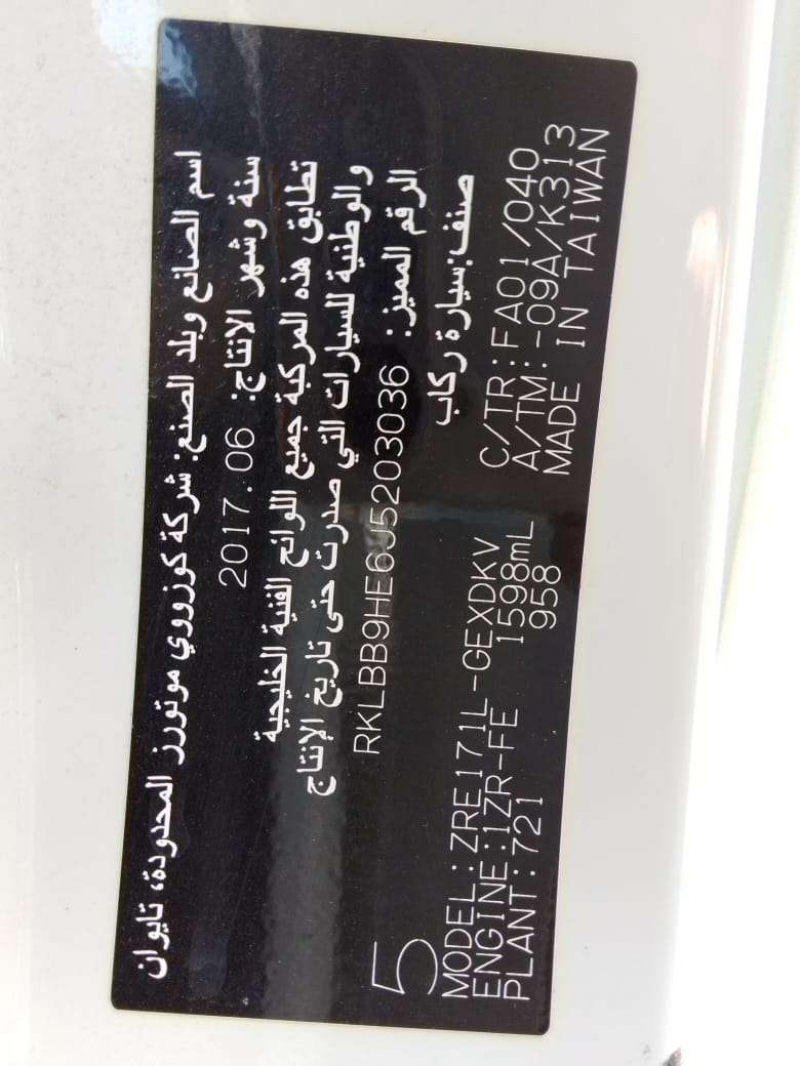 اسم الصانع وبلد الصنع: شركة كوزووي موتورز المحدودة، تايوان
سنة وشهر الانتاج: 2017.06
تطابق هذه المركبة جميع اللوائح الفنية الخليجية
والوطنية للسيارات التي صدرت حتى تاريخ الإنتاج
الرقم المميز: RKLBB9HE6J5203036
صنف:سيارة ركاب
5
MODEL:ZRE171L-GEXDKV C/TR:FA01/040
ENGINE:1ZR-FE 1598mL A/TM:-09A/K313
PLANT:721 958 MADE IN TAIWAN